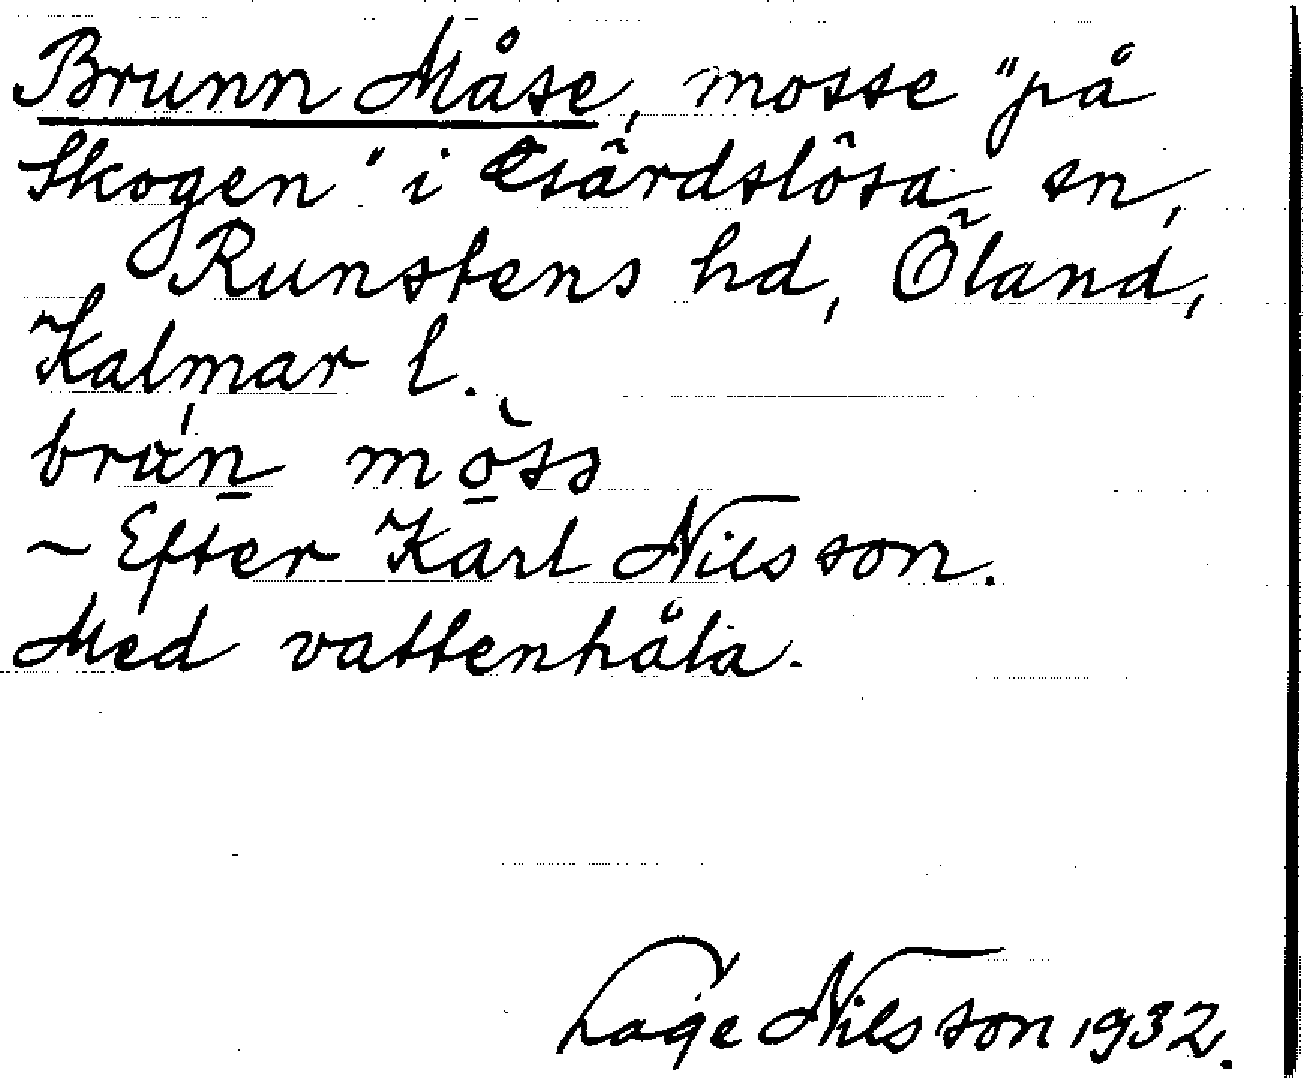 Brunn Måse, mosse "på
Skogen" i Gärdslösa sn,
Runstens hd, Öland,
Kalmar l.
brán mòss
~ Efter Karl Nilsson.
Med vattenhåla.
Lage Nilsson 1932.